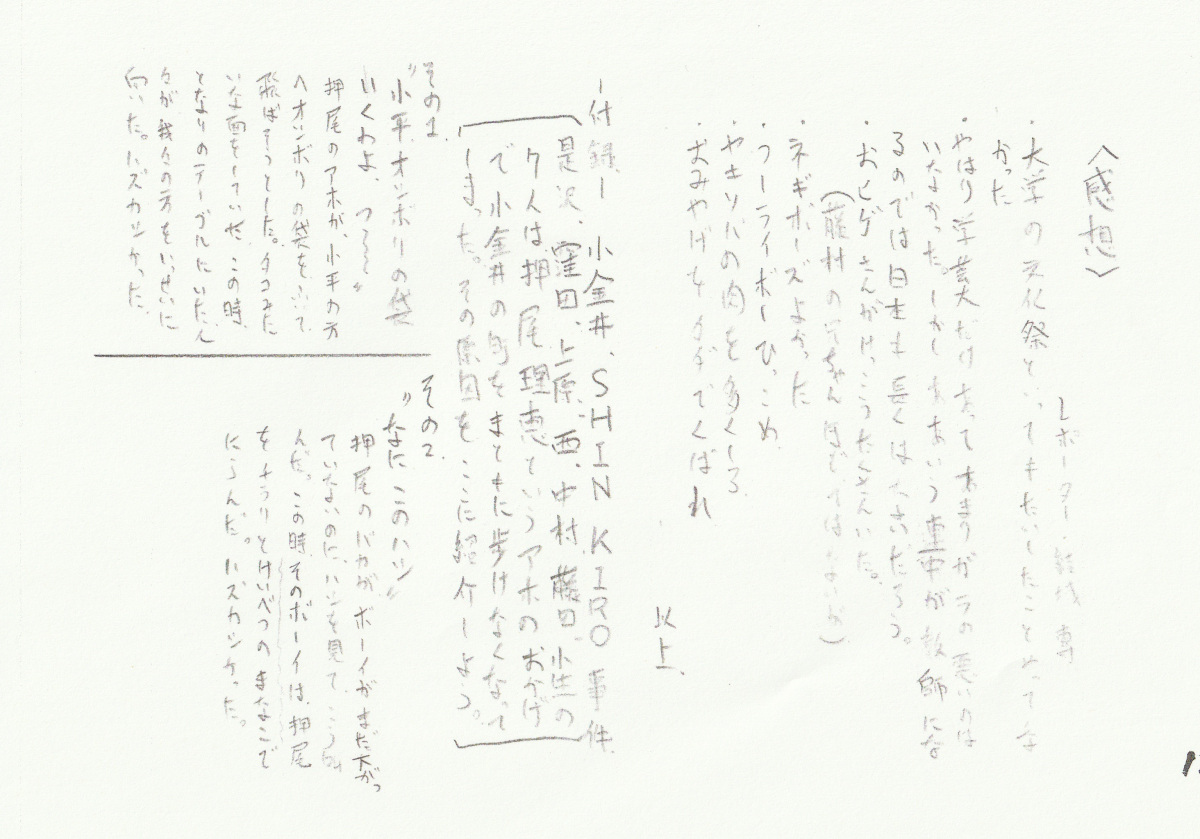 〈感想〉
レポーター・ 専
・大学の文化祭といってもたいしたことゃってな
かった
・やはり学芸大だけあってあまりガラの悪いのは
いなかった。しかしああいう連中が教師にな
るのでは日本も長くはないだろう。
・おヒゲさんがけっこうたくさんいた。
(藤村の兄ちゃんほどではないが)
・ネギボーズよかった
・フーライボーひっこめ
・やきソバの肉を多くしろ
・おみやげをタダでくばれ
以上、
―付録― 小金井、SHIN KIRO事件
是沢、窪田、上原、西、中村、藤田、小生の
7人は押尾理恵というアホのおかげ
で小金井の町をまともに歩けなくなって
しまった。その原因をここに紹介しよう。
その1.
"小平、オシボリの袋
いくわよ、フ〜〜"
押尾のアホが、小平の方
へオシボリの袋をふいて
飛ばそうとした。タコみた
いな面をしていた。この時、
となりのテーブルにいた人
々が我々の方をいっせいに
向いた。ハズカシカッた。
その2.
"なに、このハシ"
押尾のバカが、ボーイがまだ下がっ
ていないのに、ハシを見て、こう叫
んだ。この時、そのボーイは、押尾
をチラリとけいべつのまなこで
にらんだ。ハズカシカった。